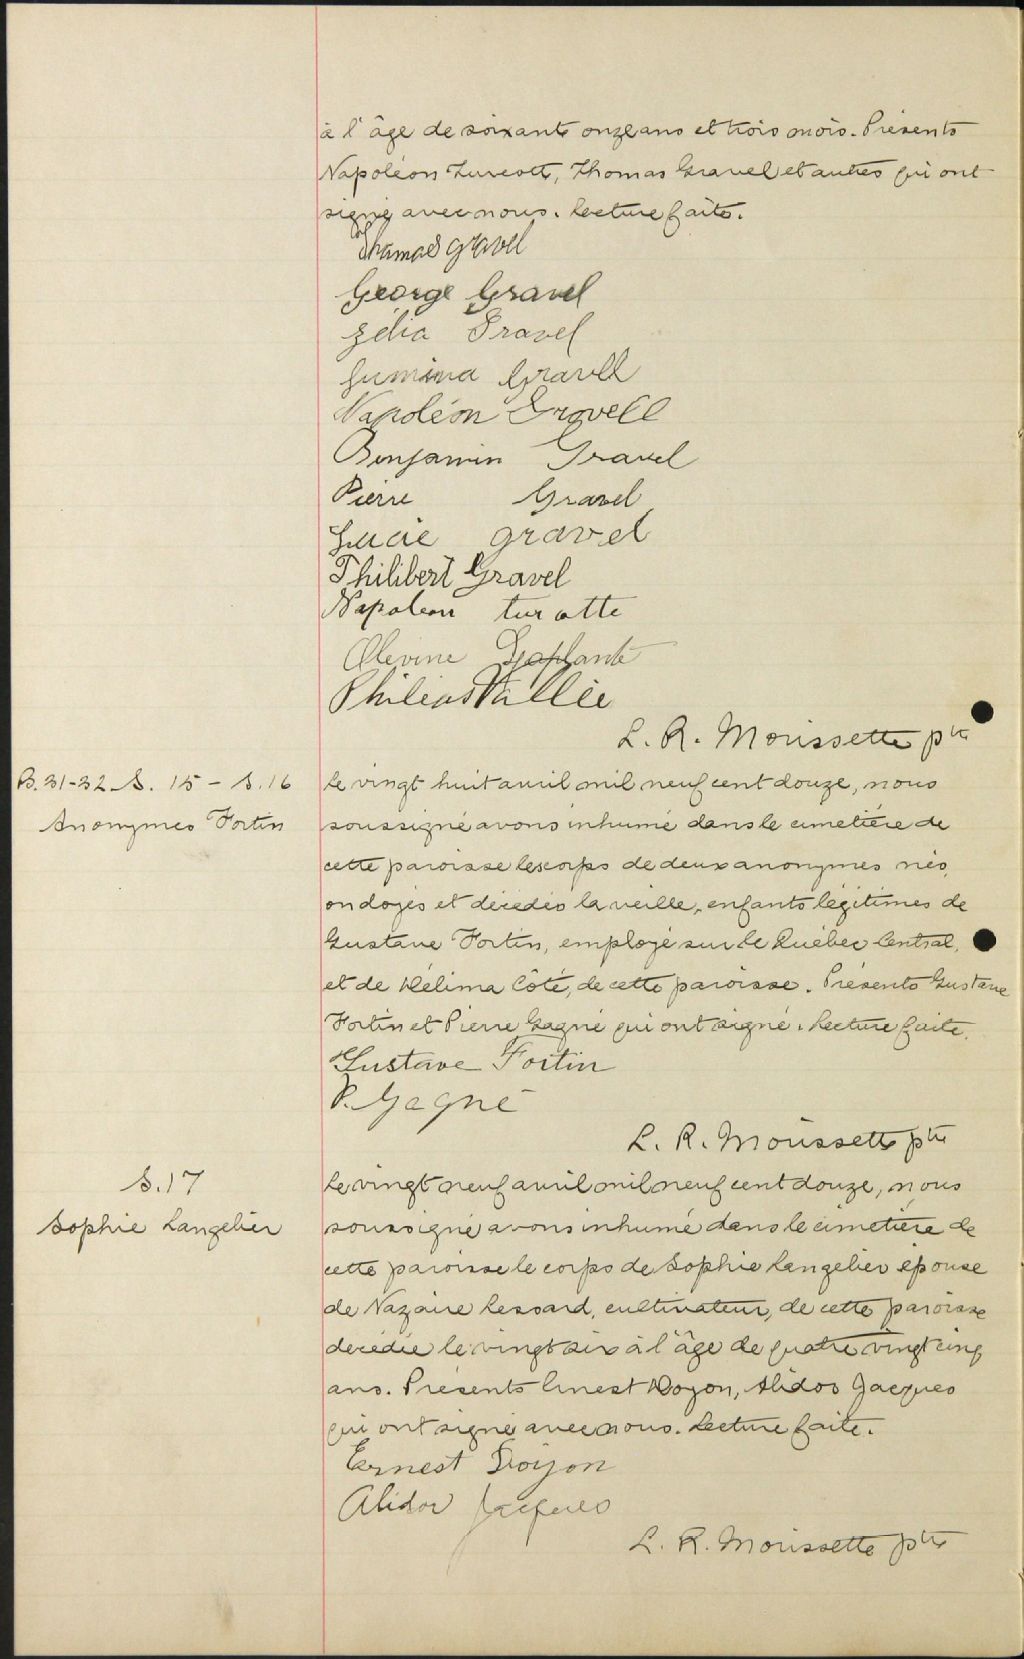 à l'âge de soixante onze ans et trois mois. Présents
Napoléon Turcotte, Thomas Gravel et autres qui ont
signé avec nous. Lecture faite.
Thomas Gravel
George Gravel
Zélia Gravel
Gravell
Napoléon Gravell
Benjamin Gravel
Pierre Gravel
Lucie gravel
Philibert Gravel
Napoleon turcotte
Olevine Laplante
Philias Vallée
L. R. Morissette ptre
B. 31-32 S. 15 - S. 16
Anonymes Fortin
Le vingt huit avril mil neuf cent douze, nous
soussigné avons inhumé dans le cimetière de
cette paroisse les corps de deux anonymes nés,
ondoyés et décédés la veille, enfants légitimes de
Gustave Fortin, employé sur le Québec Central,
et de Délima Côté, de cette paroisse. Présents Gustave
Fortin et Pierre Gagné qui ont signé. Lecture faite.
Gustave Fortin
P. Gagné
L. R. Morissette ptre
S. 17
Sophie Langelier
Le vingt neuf avril mil neuf cent douze, nous
soussigné avons inhumé dans le cimetière de
cette paroisse le corps de Sophie Langelier épouse
de Nazaire Lessard, cultivateur, de cette paroisse
décédée le vingt six à l'âge de quatre vingt cinq
ans. Présents Ernest Doyon, Alidor Jacques
qui ont signé avec nous. Lecture faite.
Ernest Doyon
Alidor Jacques
L. R. Morissette ptre